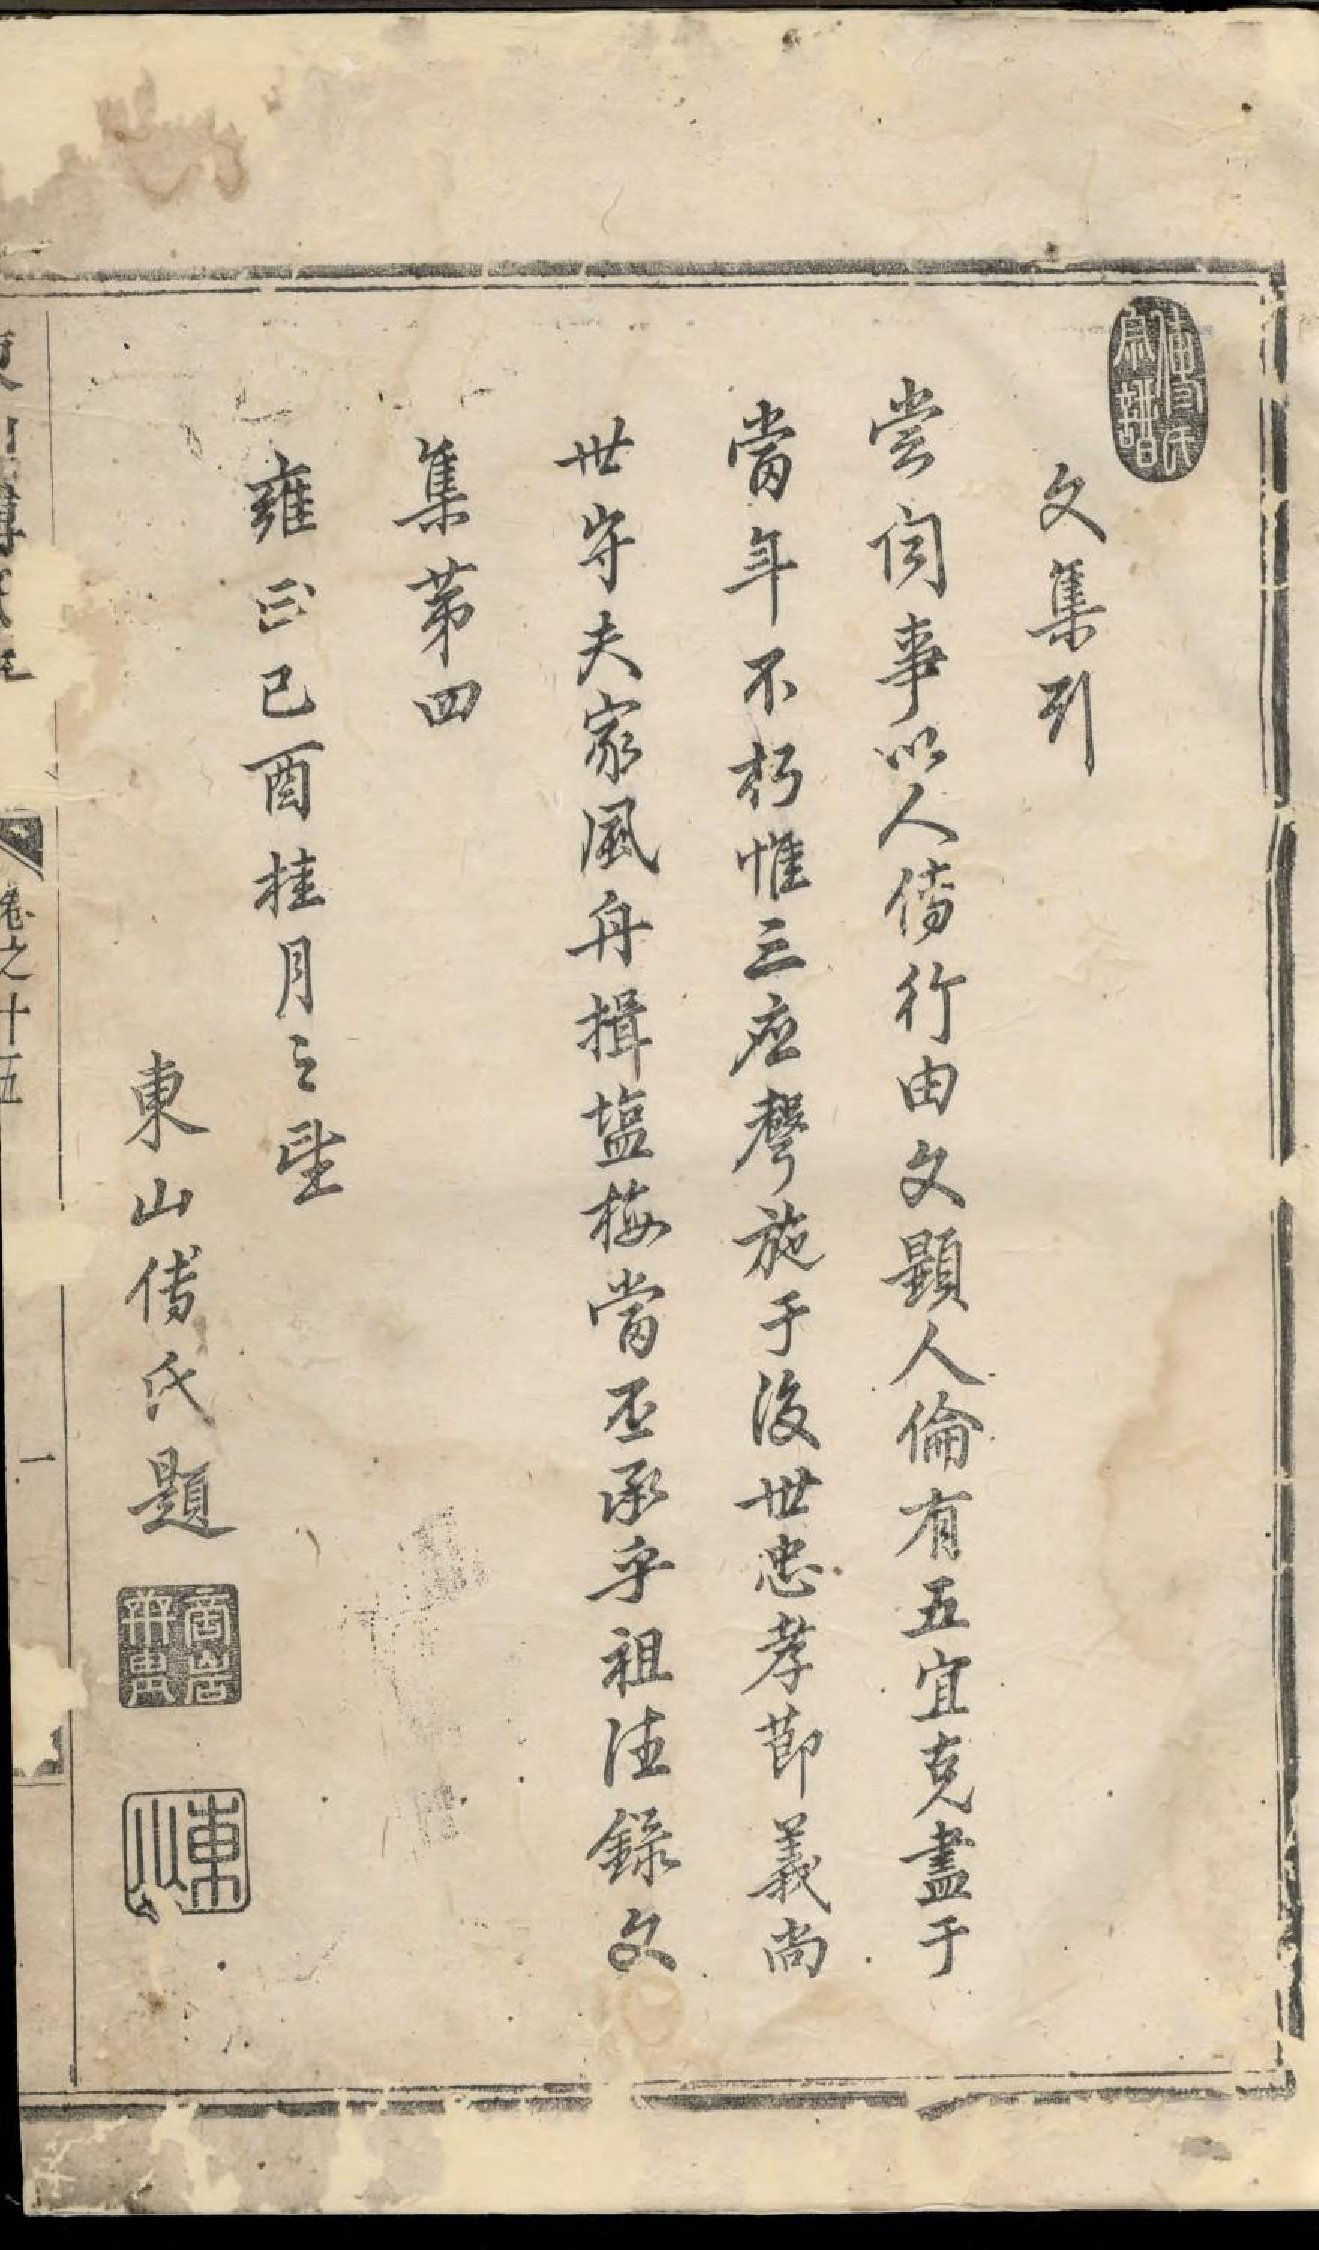 傅氏
文集引
嘗闻事以人傳行由文顯人倫有五宜克盡于
當年不朽惟三庶聲施于後世忠孝節義尚
世守夫家風舟揖塩梅當丕承乎祖德錄文
集第四
雍正己酉桂月之望
東山傅氏題
東山
東山傅氏
卷之十五
一